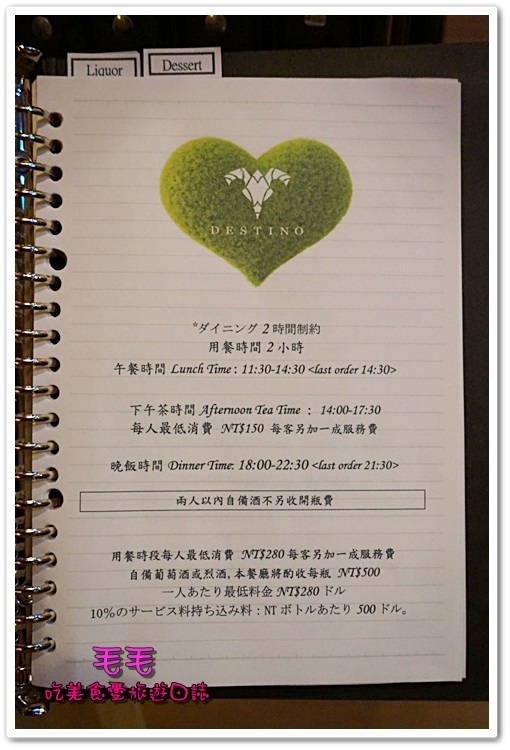 Liquor
Dessert
DESTINO
*ダイニング 2 時間制約
用餐時間 2 小時
午餐時間 Lunch Time : 11:30-14:30 <last order 14:30>
下午茶時間 Afternoon Tea Time : 14:00-17:30
每人最低消費 NT$150 每客另加一成服務費
晚飯時間 Dinner Time: 18:00-22:30 <last order 21:30>
兩人以內自備酒不另收開瓶費
用餐時段每人最低消費 NT$280 每客另加一成服務費
自備葡萄酒或烈酒,本餐廳將酌收每瓶 NT$500
一人あたり最低料金 NT$280 ドル
10%のサービス料持ち込み料:NT ボトルあたり 500 ドル。
毛毛
吃美食愛旅遊日誌